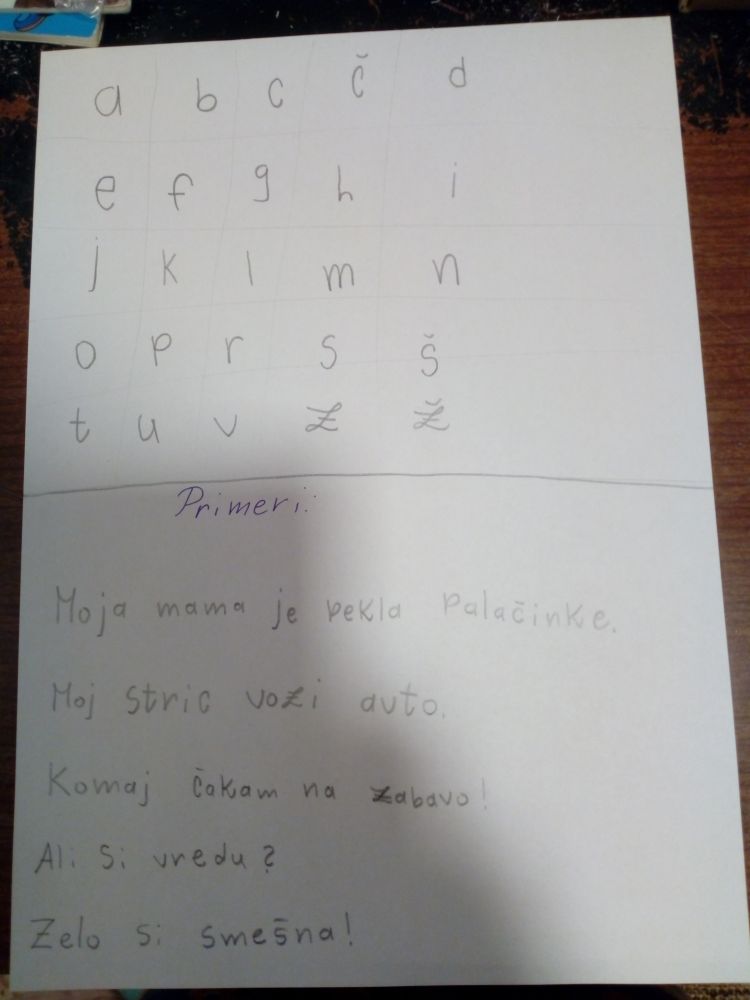 a b c č d
e f g h i
j k l m n
o p r s š
t u v z ž
Primeri:
Moja mama je pekla palačinke.
Moj stric vozi avto.
Komaj čakam na zabavo!
Ali si vredu?
Zelo si smešna!